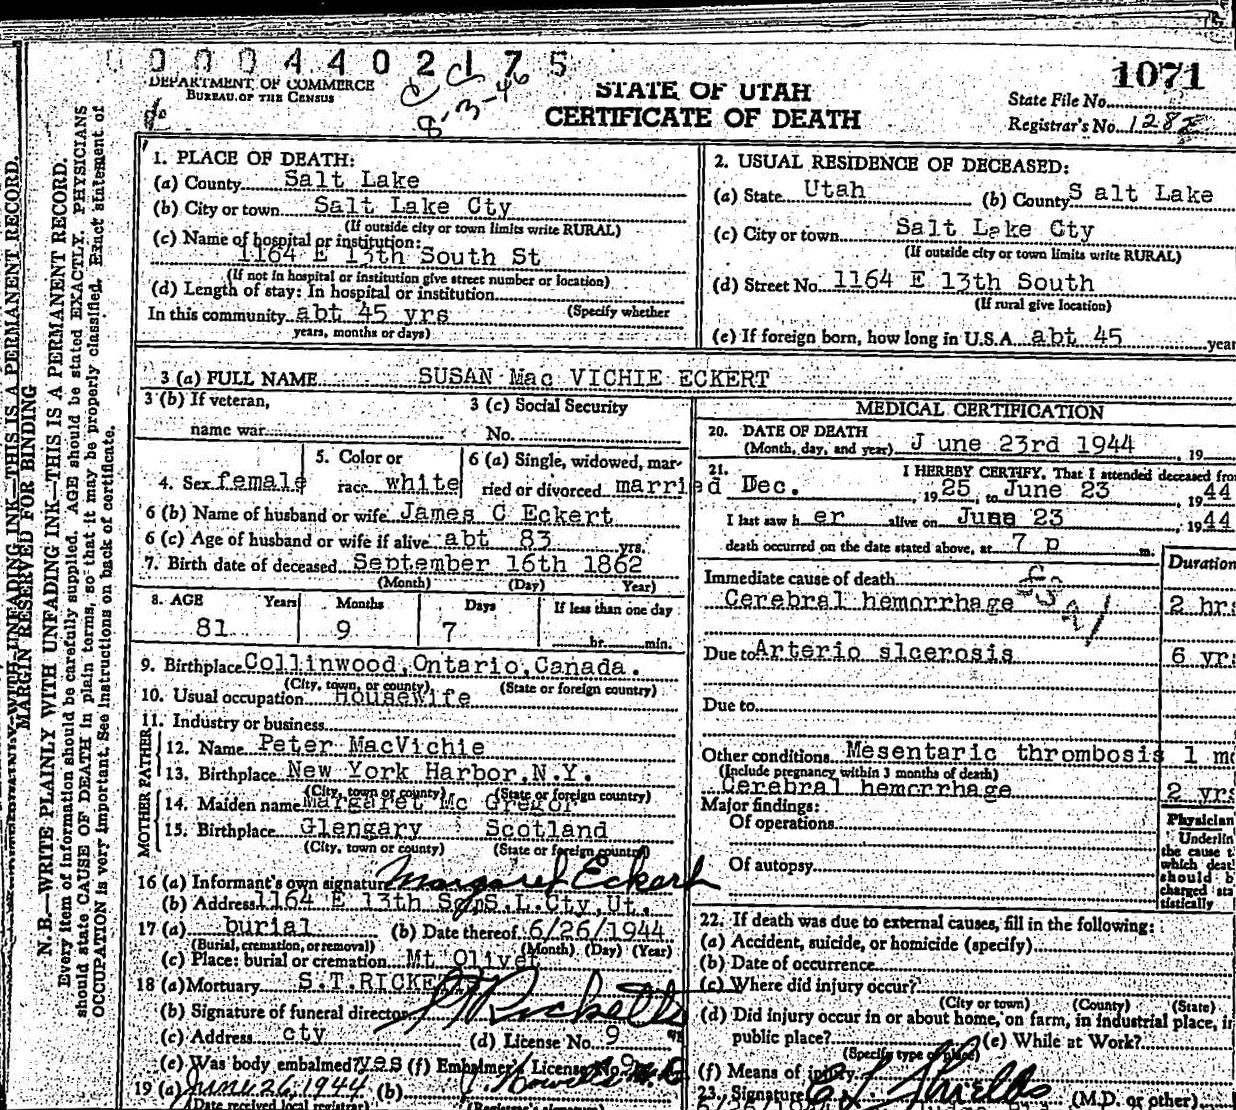 0 0 0 4 4 0 2 1 7 5
DEPARTMENT OF COMMERCE
BUREAU OF THE CENSUS
8-3-46
STATE OF UTAH
CERTIFICATE OF DEATH
1071
State File No.
Registrar's No. 1282
MARGIN RESERVED FOR BINDING
N. B.—WRITE PLAINLY WITH UNFADING INK—THIS IS A PERMANENT RECORD.
Every item of information should be carefully supplied. AGE should be stated EXACTLY. PHYSICIANS
should state CAUSE OF DEATH in plain terms, so that it may be properly classified. Exact statement of
OCCUPATION is very important. See instructions on back of certificate.
1. PLACE OF DEATH:
(a) County Salt Lake
(b) City or town Salt Lake Cty
(If outside city or town limits write RURAL)
(c) Name of hospital or institution:
1164 E 13th South St
(If not in hospital or institution give street number or location)
(d) Length of stay: In hospital or institution
In this community abt 45 yrs (Specify whether
years, months or days)
2. USUAL RESIDENCE OF DECEASED:
(a) State Utah (b) County S alt Lake
(c) City or town Salt Lake Cty
(If outside city or town limits write RURAL)
(d) Street No. 1164 E 13th South
(If rural give location)
(e) If foreign born, how long in U.S.A. abt 45 year
3 (a) FULL NAME SUSAN Mac VICHIE ECKERT
3 (b) If veteran,
name war
3 (c) Social Security
No.
4. Sex female
5. Color or
race white
6 (a) Single, widowed, mar-
ried or divorced married
6 (b) Name of husband or wife James C Eckert
6 (c) Age of husband or wife if alive abt 83 yrs.
7. Birth date of deceased September 16th 1862
(Month) (Day) Year)
8. AGE Years Months Days If less than one day
81 9 7 hr. min.
9. Birthplace Collinwood, Ontario, Canada.
(City, town, or county) (State or foreign country)
10. Usual occupation Housewife
11. Industry or business
FATHER
12. Name Peter MacVichie
13. Birthplace New York Harbor, N.Y.
(City, town or county) (State or foreign country)
MOTHER
14. Maiden name Margaret Mc Gregor
15. Birthplace Glengary Scotland
(City, town or county) (State or foreign country)
16 (a) Informant's own signature Margaret Eckert
(b) Address 1164 E 13th So, S.L.Cty, Ut.
17 (a) burial (b) Date thereof 6/26/1944
(Burial, cremation, or removal) (Month) (Day) (Year)
(c) Place: burial or cremation Mt Olivet
18 (a) Mortuary S.T.RICKETTS
(b) Signature of funeral director Ricketts
(c) Address cty (d) License No. 9
(e) Was body embalmed? yes (f) Embalmer's License No.
19 (a) June 26, 1944 (b)
(Date received local registrar)
MEDICAL CERTIFICATION
20. DATE OF DEATH
(Month, day, and year) J une 23rd 1944, 19
21. I HEREBY CERTIFY, That I attended deceased from
Dec. , 1925, to June 23 , 1944
I last saw h er alive on June 23 , 1944
death occurred on the date stated above, at 7 p m.
Duration
Immediate cause of death
Cerebral hemorrhage 2 hrs
Due to Arterio slcerosis 6 yrs
Due to
Other conditions Mesentaric thrombosis 1 mo
(Include pregnancy within 3 months of death)
Cerebral hemorrhage 2 yrs
Major findings:
Of operations
Of autopsy
Physician
Underlin
the cause t
which deat
should b
charged sta
tistically
22. If death was due to external causes, fill in the following:
(a) Accident, suicide, or homicide (specify)
(b) Date of occurrence
(c) Where did injury occur?
(City or town) (County) (State)
(d) Did injury occur in or about home, on farm, in industrial place, in
public place? (e) While at Work?
(Specify type of place)
(f) Means of injury
23. Signature Shields (M.D. or other)